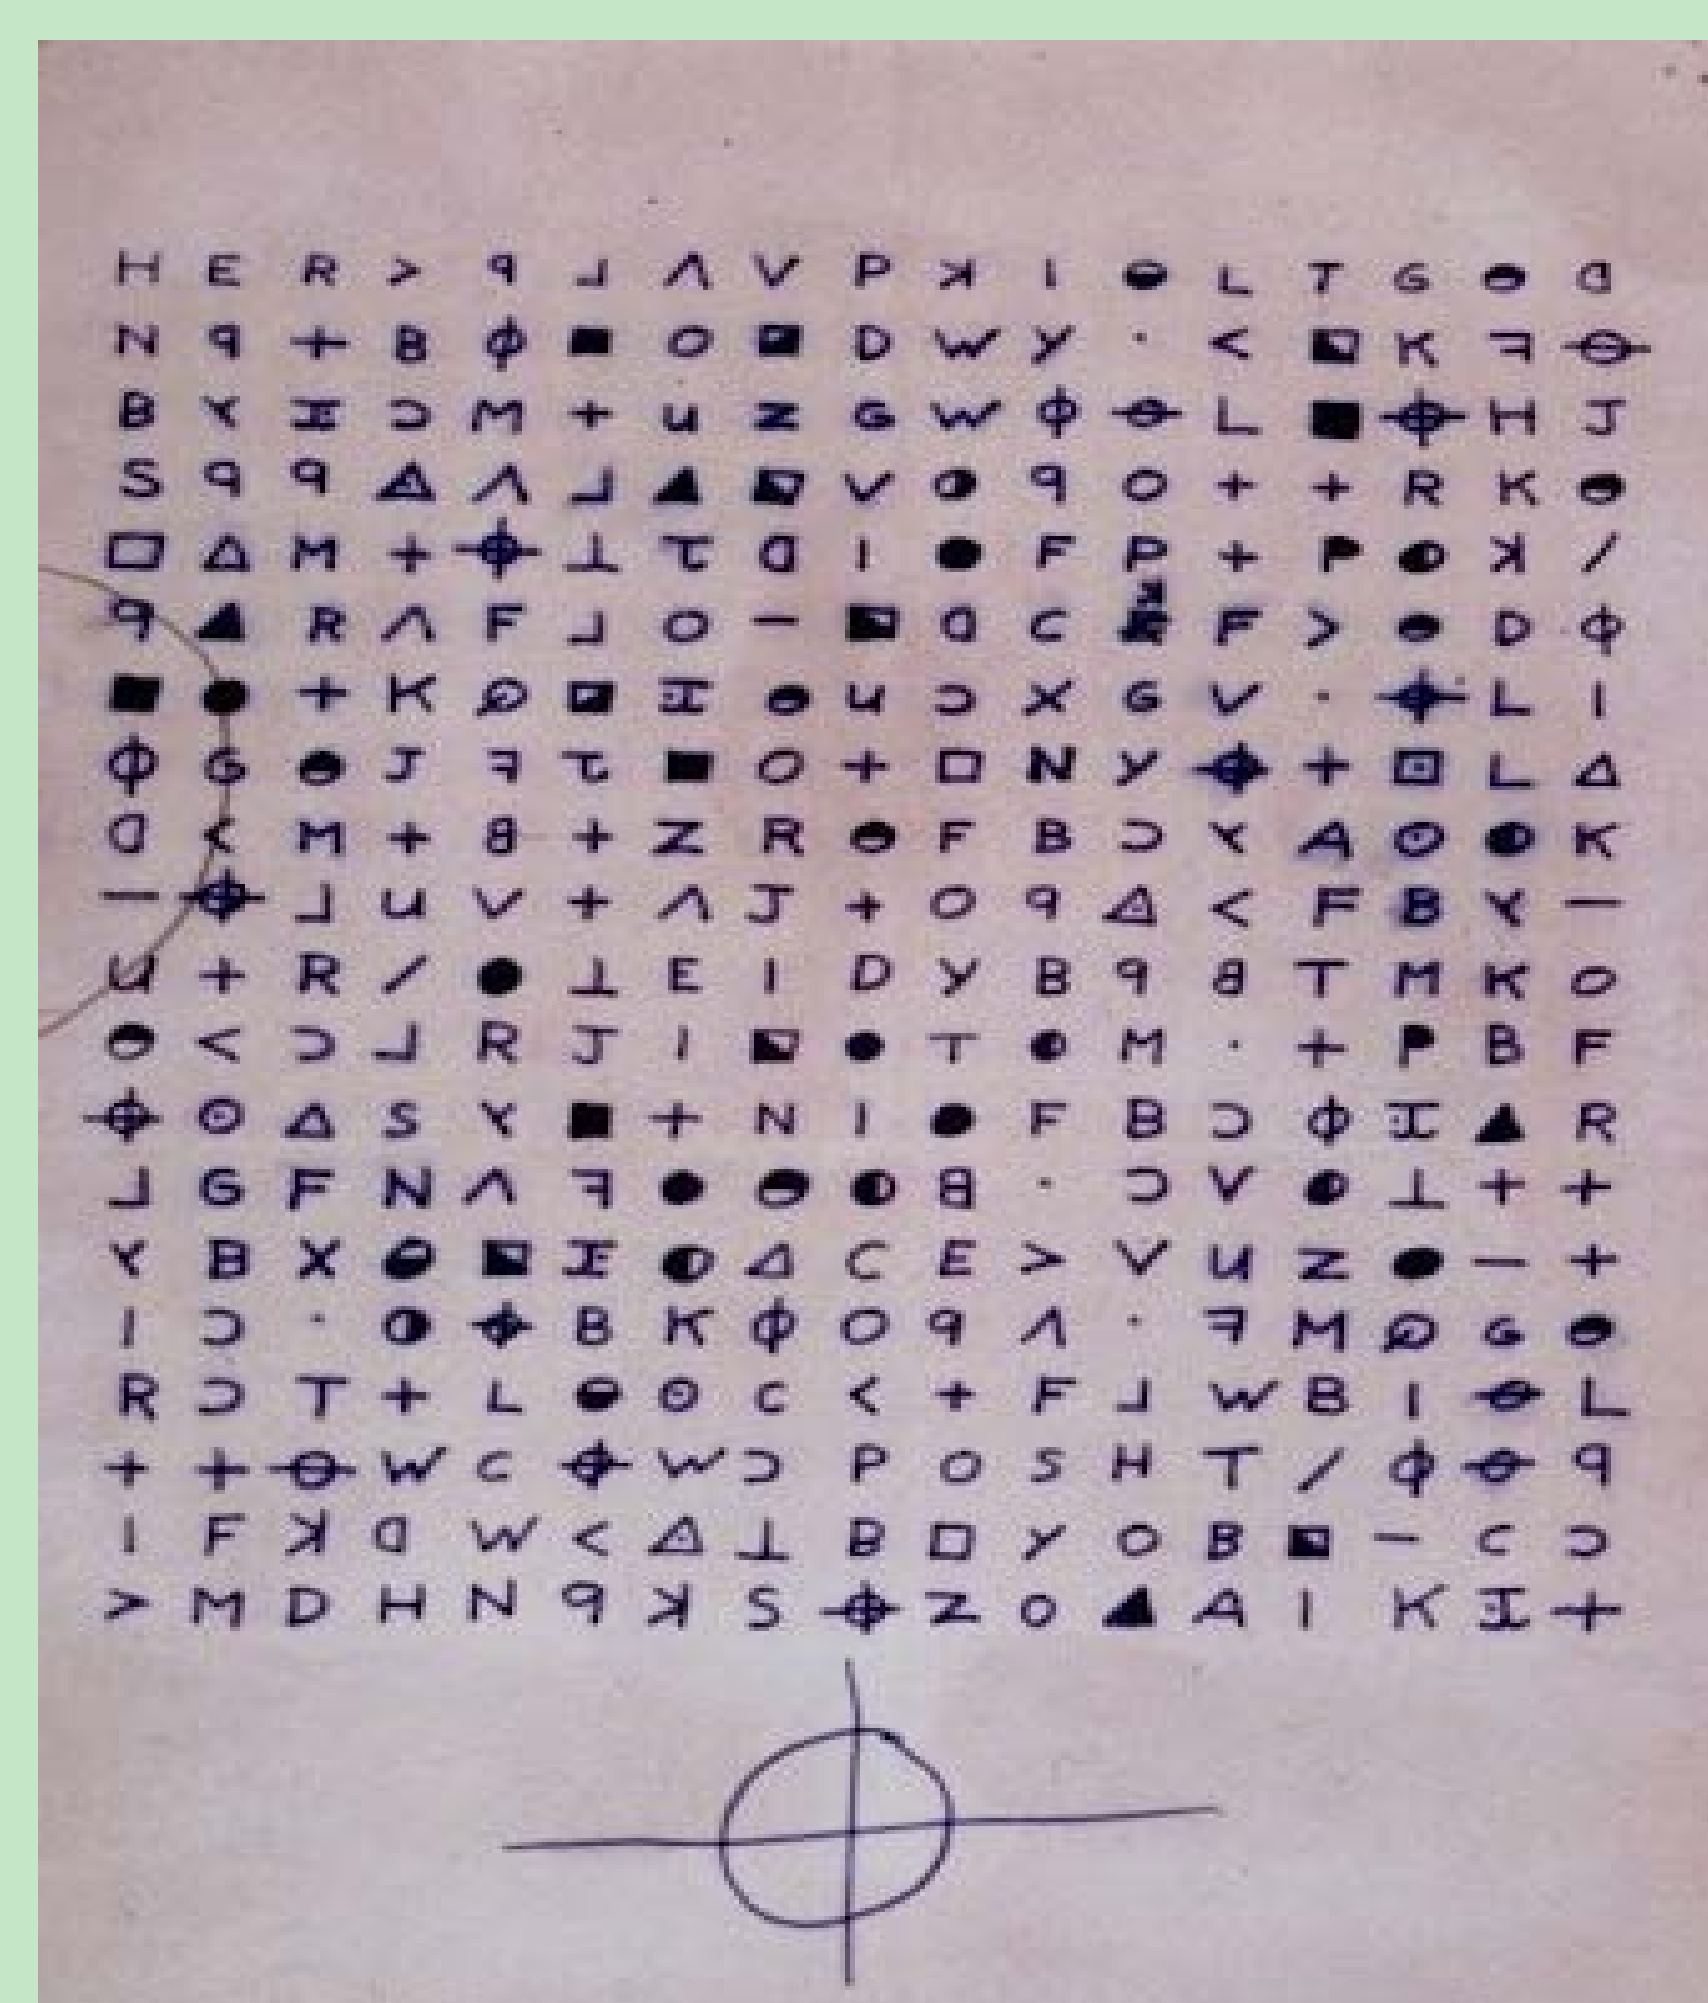 H E R > ꟼ ⅃ Λ V P ꓘ I ◒ L T G ◓ ᗡ
N ꟼ + B ϕ ■ O ◪ D W Y · < ◪ K ꟻ ⊖
B ⅄ Ɪ Ɔ M + U Z G W ϕ ⊖ L ■ ⌖ H J
S ꟼ ꟼ ◬ Λ ⅃ ◢ ◪ V ◑ ꟼ O + + R K ◓
□ △ M + ⌖ ⊥ Ʈ ᗡ I ● F P + P ◐ ꓘ /
ꟼ ◢ R Λ F ⅃ O — ◪ ᗡ C ꓘ F > ◓ D ϕ
■ ● + K ⌕ ◪ Ɪ ◓ U Ɔ X G V · ⌖ L I
ϕ G ◓ J ꟻ Ʈ ■ O + □ N Y ⌖ + ⊡ L △
ᗡ < M + 8 + Z R ◓ F B Ɔ ⅄ A ⊙ ◐ K
— ⌖ ⅃ U V + Λ J + O ꟼ ◬ < F B ⅄ —
U + R / ● ⊥ E I D Y B ꟼ 8 T M K O
◓ < Ɔ ⅃ R J I ◪ ● T ◐ M · + P B F
⌖ ⊙ ◬ S ⅄ ■ + N I ● F B Ɔ ϕ Ɪ ◢ R
⅃ G F N Λ ꟻ ● ◒ ◐ 8 · Ɔ V ◐ ⊥ + +
⅄ B X ◒ ◪ Ɪ ◐ △ C E > V U Z ● — +
I Ɔ · ◑ ⌖ B K ϕ O ꟼ Λ · ꟻ M ⌕ G ◓
R Ɔ T + L ◒ ⊙ C < + F ⅃ W B I ⊖ L
+ + ⊖ W C ⌖ W Ɔ P O S H T / ϕ ⊖ ꟼ
I F ꓘ ᗡ W < ◬ ⊥ B □ Y O B ◪ — C Ɔ
> M D H N ꟼ ꓘ S ⌖ Z O ◢ A I K Ɪ +